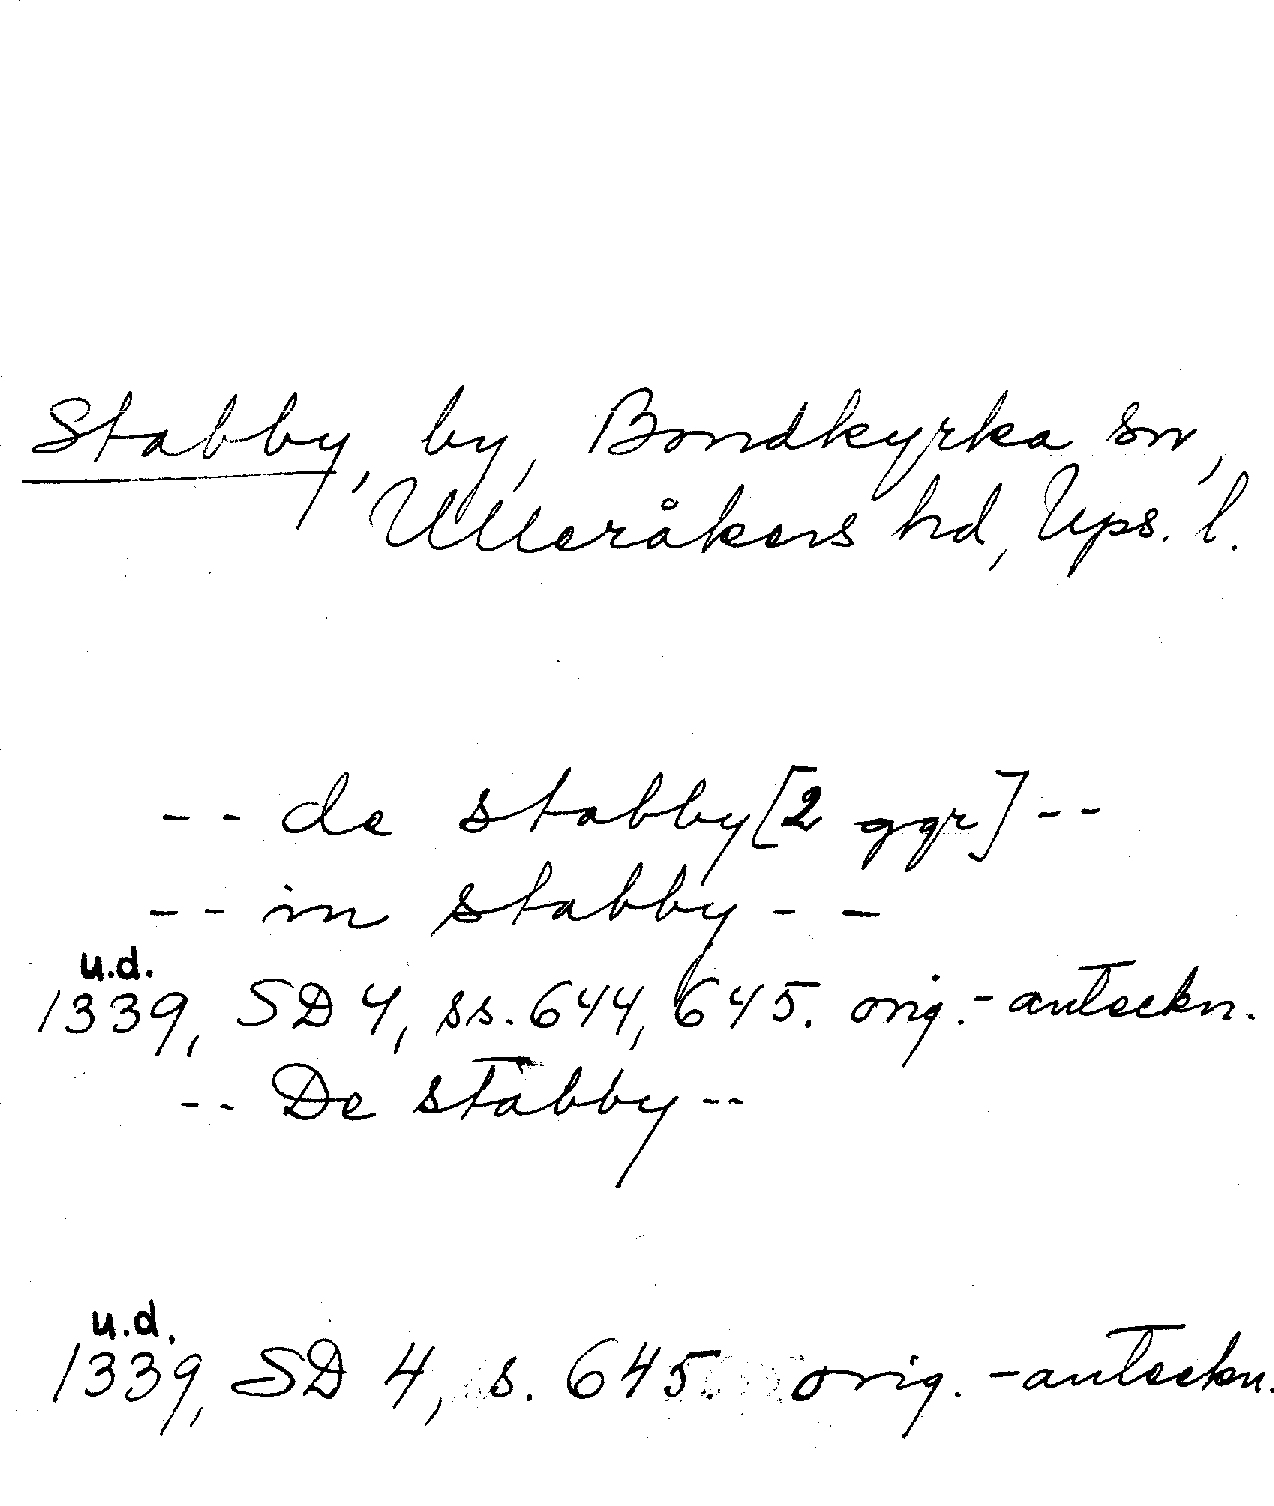 Stabby, by, Bondkyrka sn,
Ulleråkers hd, Ups. l.
-- de stabby [2 ggr] --
-- in stabby --
u.d.
1339, SD 4, ss. 644, 645. orig.-anteckn.
-- De stabby --
u.d.
1339, SD 4, s. 645. orig.-anteckn.